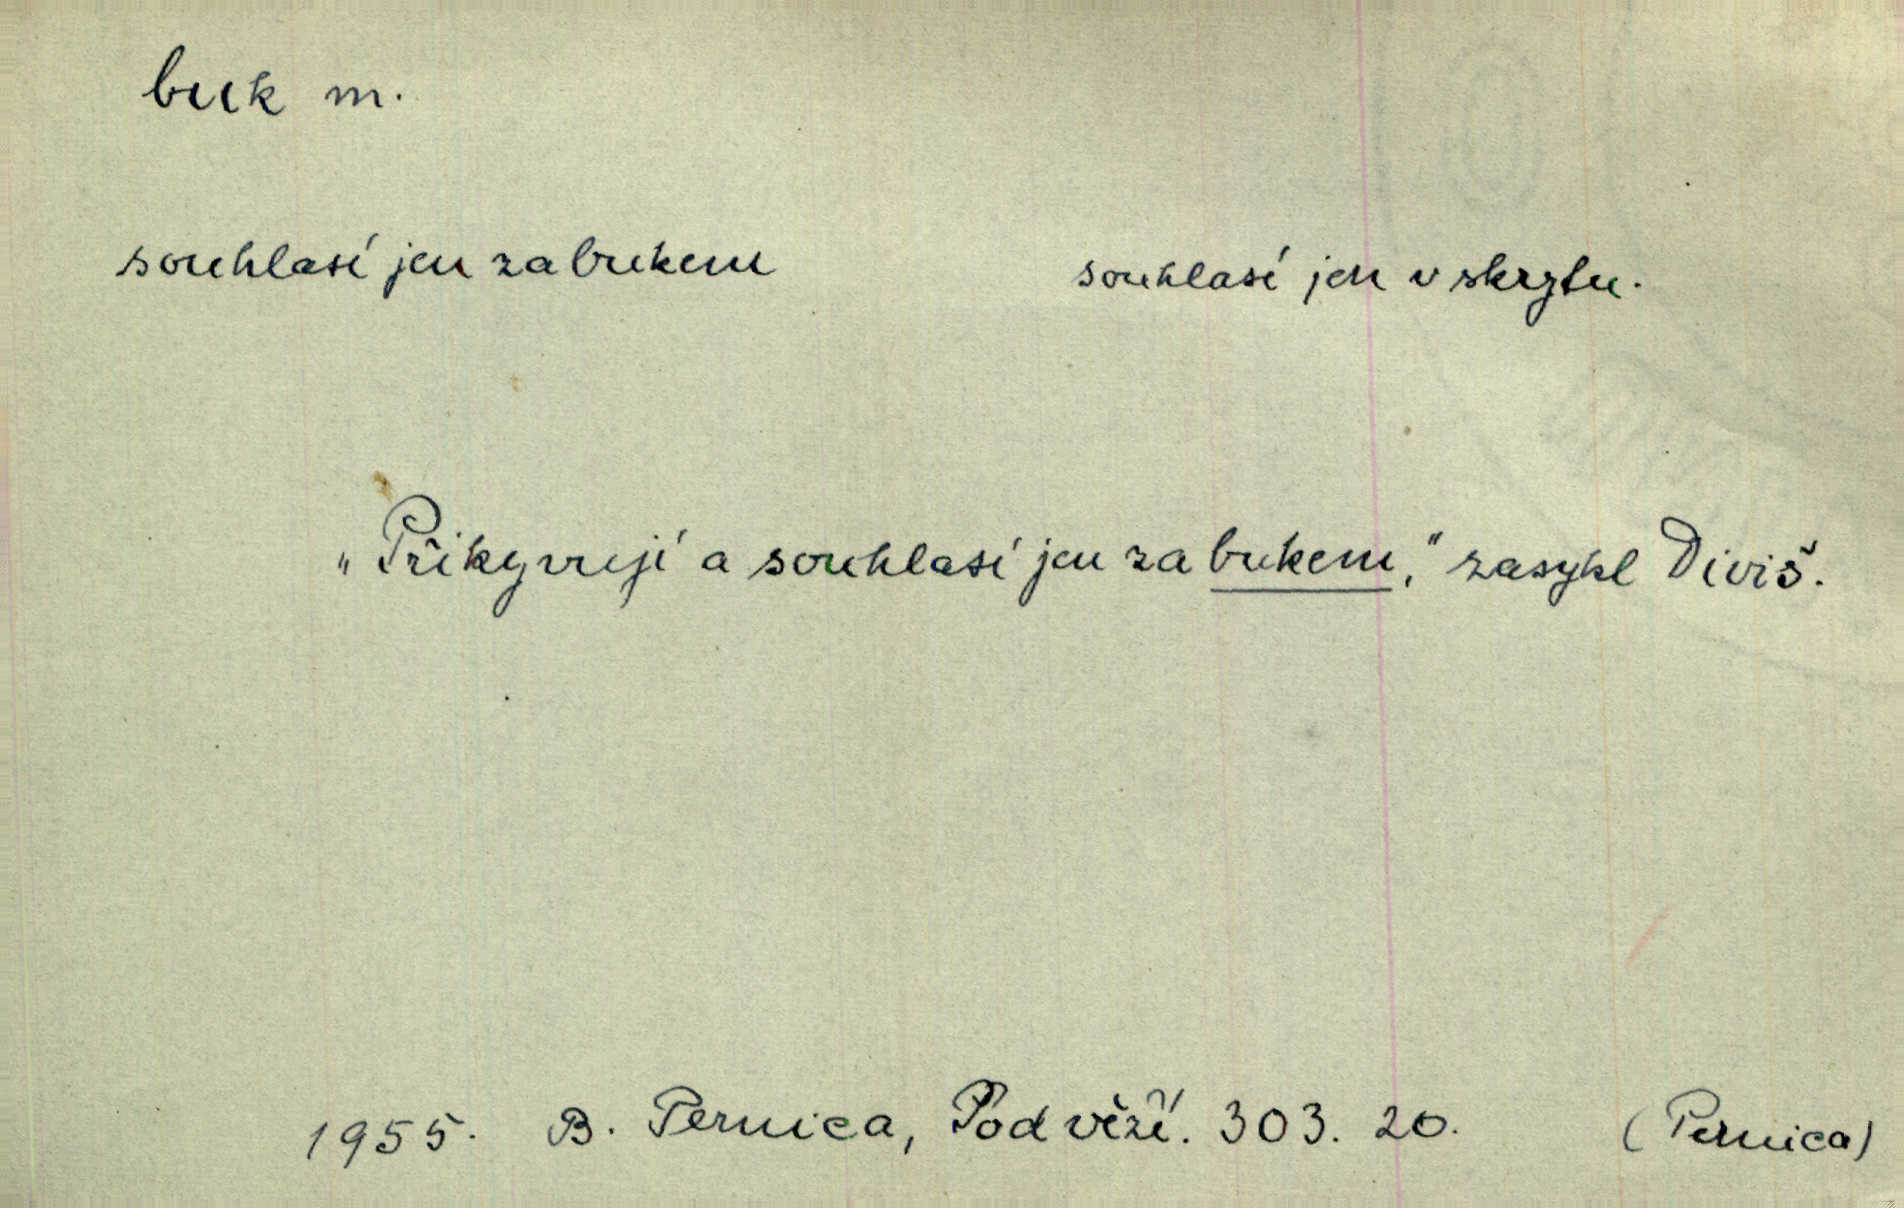 buk m.
souhlasí jen za bukem souhlasí jen v skrytu.
„Přikyvují a souhlasí jen za bukem,“ zasykl Diviš.
1955. B. Pernica, Pod věží. 303. 20. (Pernica)